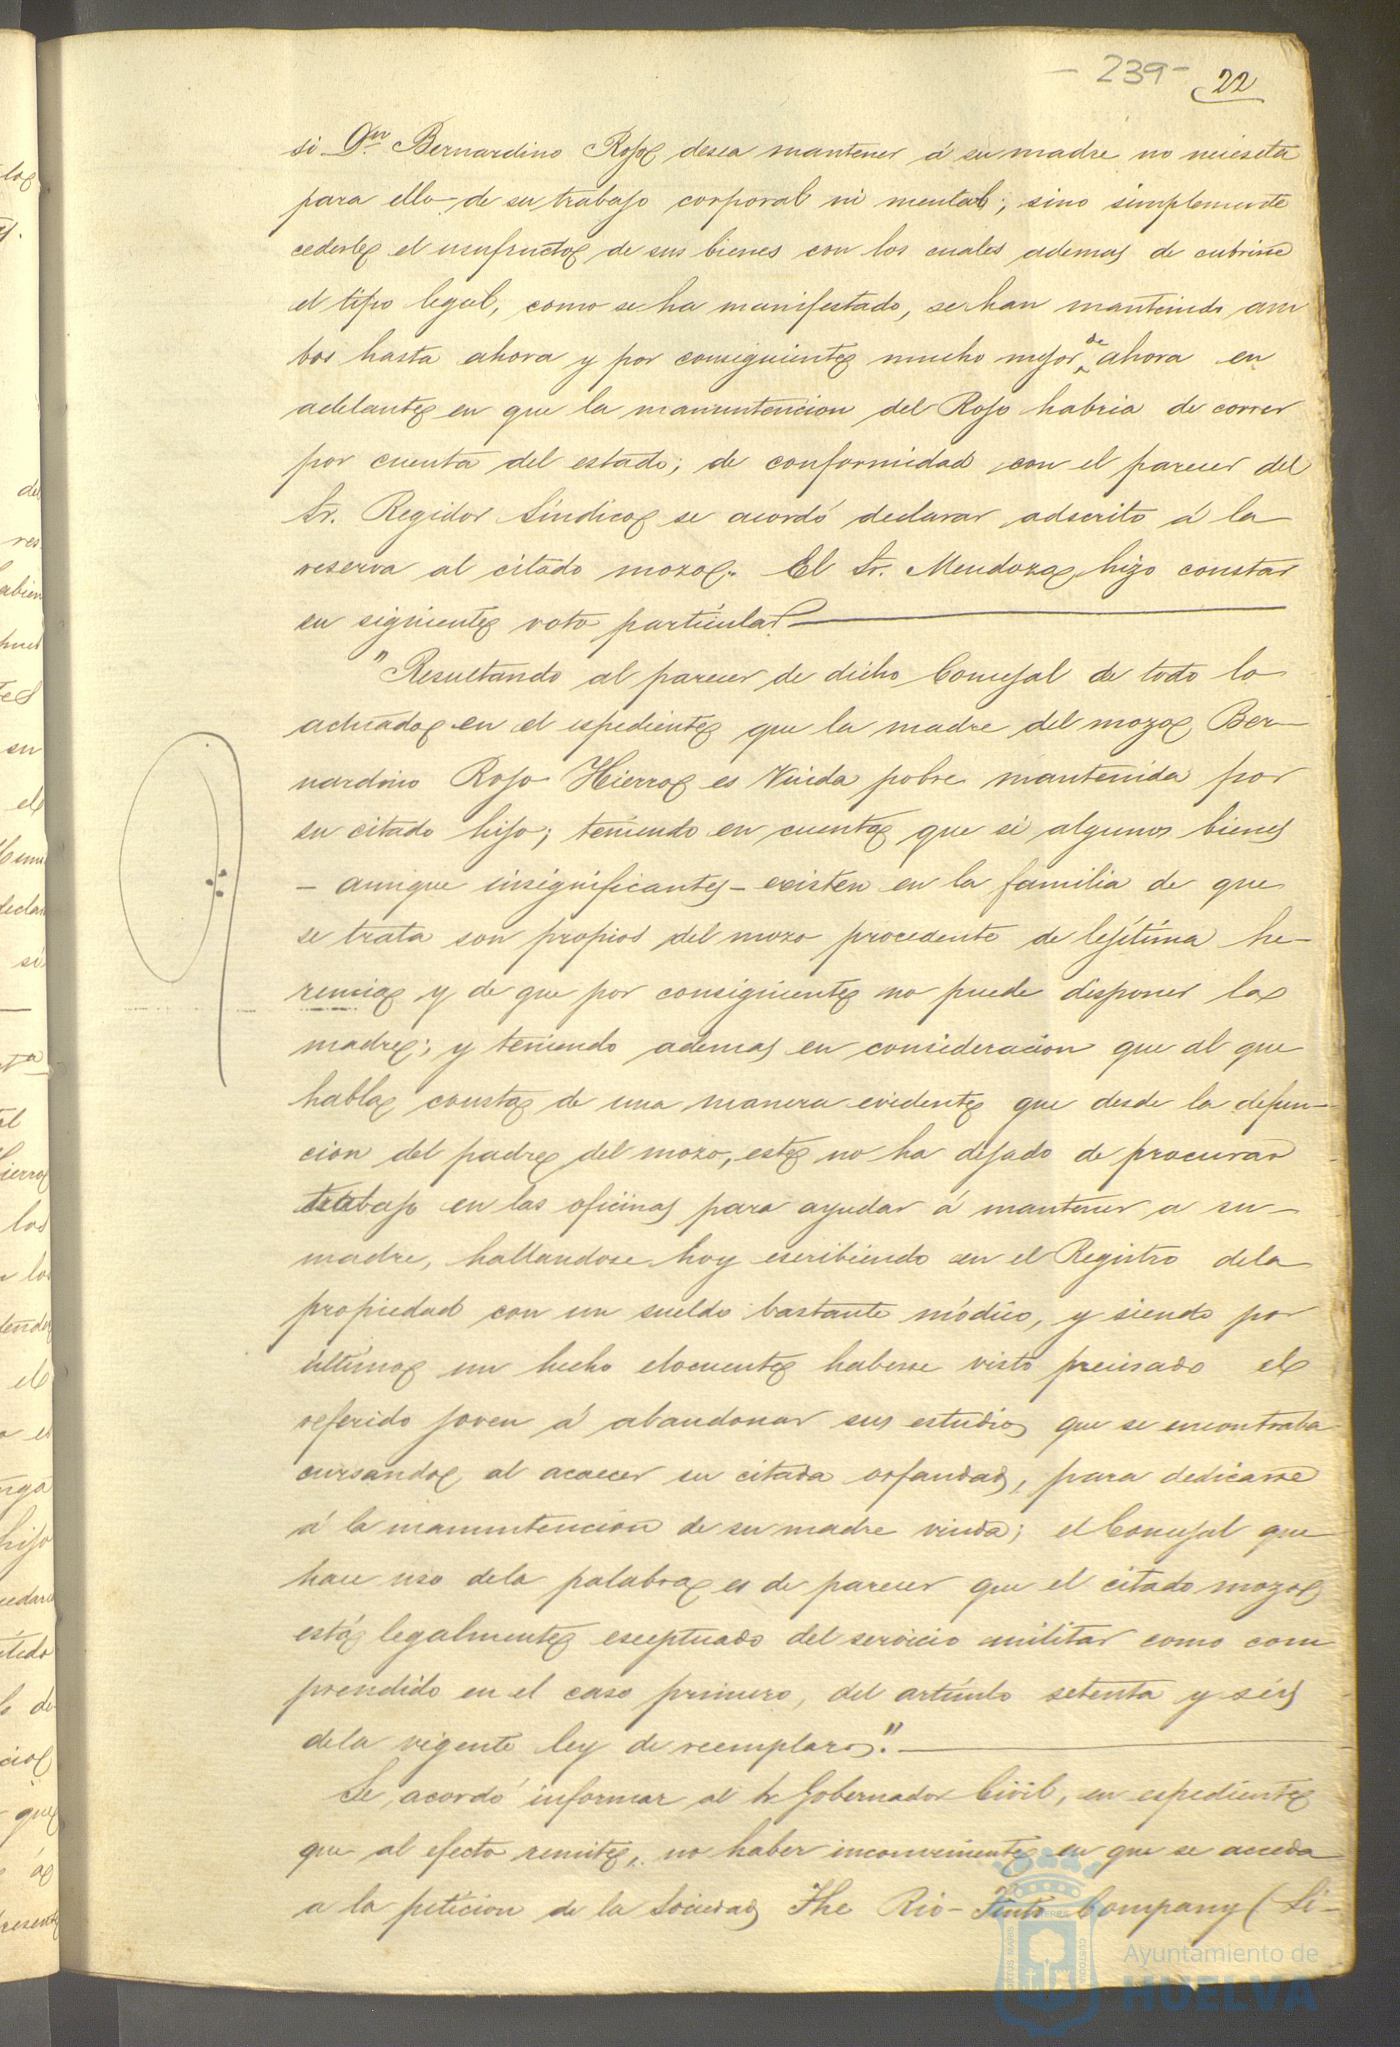 - 239 - 22
si Dn Bernardino Rojo desea mantener á su madre no necesita
para ello de su trabajo corporal ni mental; sino simplemente
cederle el usufructo de sus bienes con los cuales ademas de cubrirse
el tipo legal, como se ha manifestado, se han mantenido am
bos hasta ahora y por consiguiente mucho mejor de ahora en
adelante en que la manuntencion del Rojo habria de correr
por cuenta del estado; de conformidad con el parecer del
Sr. Regidor Sindico se acordó declarar adscrito á la
reserva al citado mozo. El Sr. Mendoza hizo constar
su siguiente voto particular.
"Resultando al parecer de dicho Concejal de todo lo
actuado en el espediente que la madre del mozo Ber-
nardino Rojo Hierro es Viuda pobre mantenida por
su citado hijo; teniendo en cuenta que si algunos bienes
- aunque insignificantes - existen en la familia de que
se trata son propios del mozo procedente de lejítima he-
rencia y de que por consiguiente no puede disponer la
madre; y teniendo ademas en consideracion que al que
habla consta de una manera evidente que desde la defun-
cion del padre del mozo, este no ha dejado de procurar
trabajo en las oficinas para ayudar á mantener a su
madre, hallandose hoy escribiendo en el Registro dela
propiedad con un sueldo bastante módico, y siendo por
último un hecho elocuente haberse visto precisado el
referido joven á abandonar sus estudios que se encontraba
cursando al acaecer su citada orfandad, para dedicarse
á la manuntencion de su madre viuda; el Concejal que
hace uso dela palabra es de parecer que el citado mozo
está legalmente esceptuado del servicio militar como com
prendido en el caso primero, del artículo setenta y seis
dela vigente ley de reemplazos".
Se acordó informar al Sr Gobernador Civil, en espediente
que al efecto remite, no haber inconveniente en que se acceda
a la peticion de la Sociedad The Rio-Tinto Company (Li-
Ayuntamiento de
HUELVA